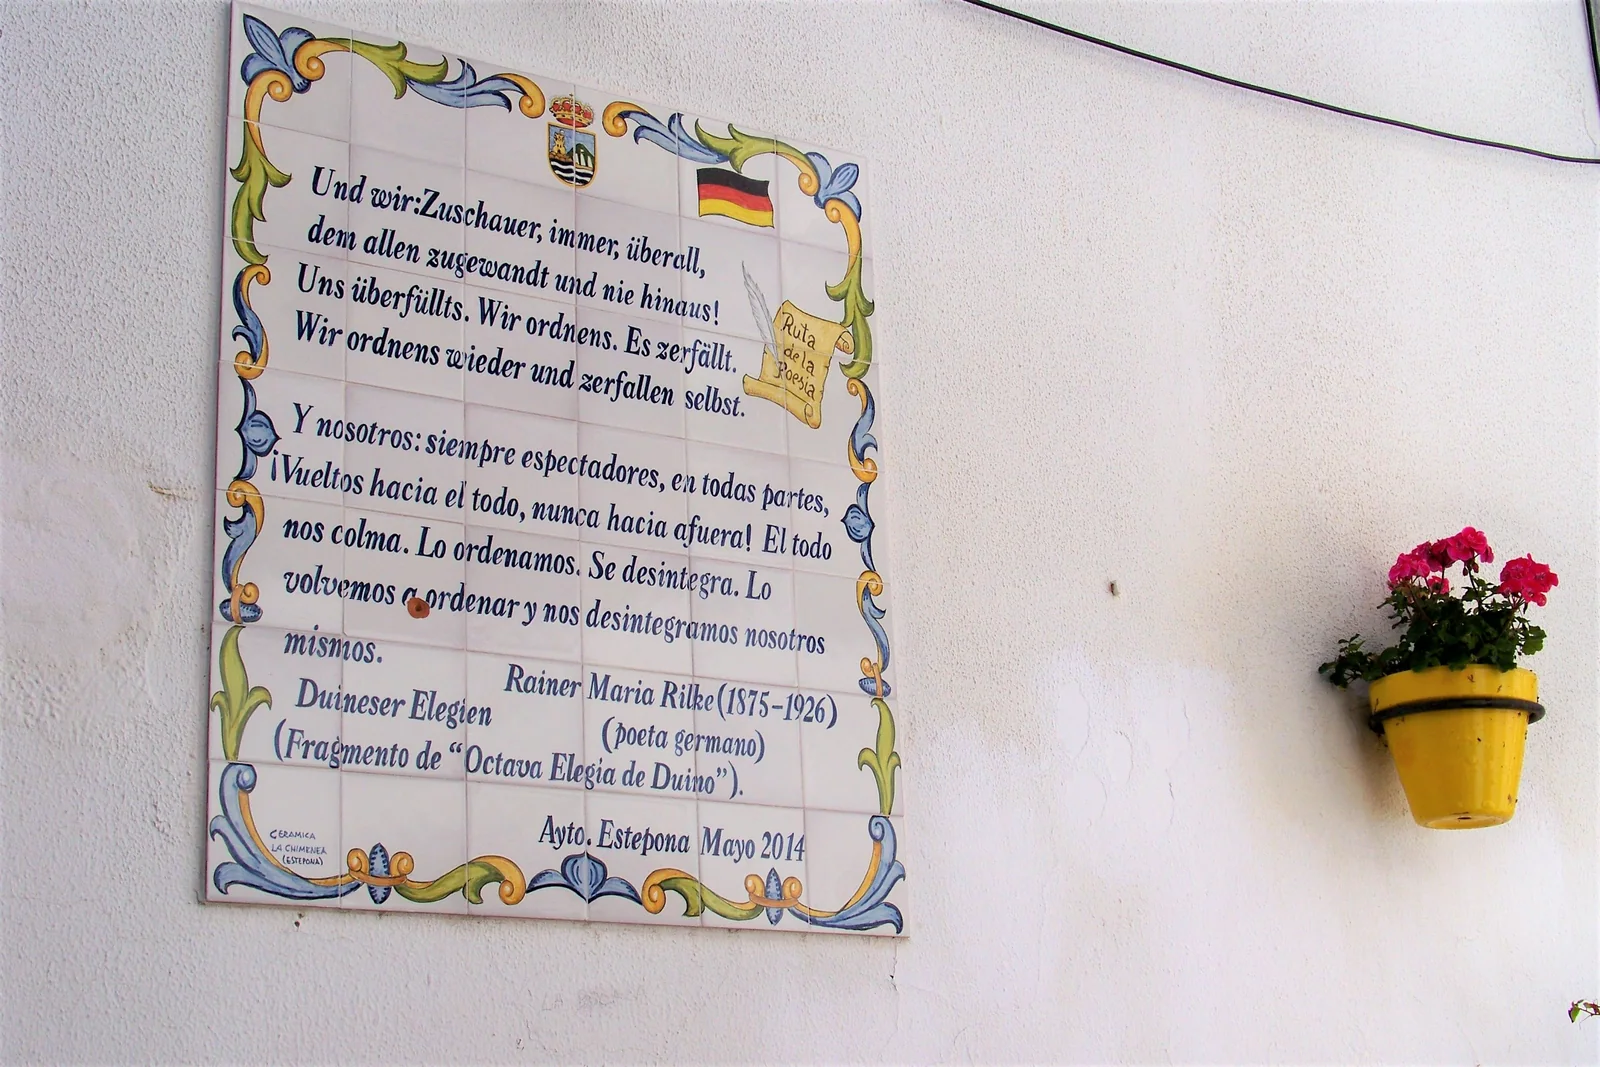 Und wir:Zuschauer, immer, überall,
dem allen zugewandt und nie hinaus!
Uns überfüllts. Wir ordnens. Es zerfällt.
Wir ordnens wieder und zerfallen selbst.
Ruta
de la
Poesia
Y nosotros: siempre espectadores, en todas partes,
¡Vueltos hacia el todo, nunca hacia afuera! El todo
nos colma. Lo ordenamos. Se desintegra. Lo
volvemos a ordenar y nos desintegramos nosotros
mismos.
Rainer Maria Rilke (1875-1926)
Duineser Elegien
(poeta germano)
(Fragmento de “Octava Elegia de Duino”).
Ayto. Estepona Mayo 2014
CERAMICA
LA CHIMENEA
(ESTEPONA)